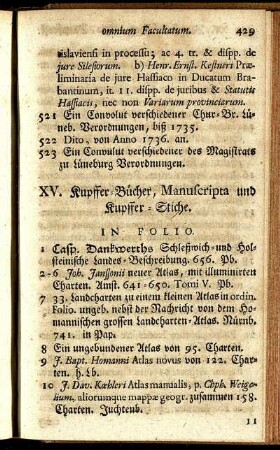 omnium Facultatum. 429
tislaviensi in processu; ac 4. tr. & dispp. de
jure Silesiorum. b) Henr. Ernst. Kestneri Præ-
liminaria de jure Hassiaco in Ducatum Bra-
bantinum, it. 11. dispp. de juribus & Statutis
Hassiacis, nec non Variarum provinciarum.
521 Ein Convolut verschiedener Chur-Br. Lü-
neb. Verordnungen, biß 1735.
522 Dito, von Anno 1736. an.
523 Ein Convolut verschiedener des Magistrats
zu Lüneburg Verordnungen.
XV. Kupffer-Bücher, Manuscripta und
Kupffer-Stiche.
IN FOLIO.
1 Casp. Danckwerths Schleßwich-und Hol-
steinische Landes-Beschreibung. 656. Pb.
2-6 Joh. Janssonii neuer Atlas, mit illuminirten
Charten. Amst. 641-650. Tomi V. Pb.
7 33. Landcharten zu einem kleinen Atlas in ordin.
Folio. ungeb. nebst der Nachricht von dem Ho-
mannischen grossen Landcharten-Atlas. Nürnb.
741. in Pap.
8 Ein ungebundener Atlas von 95. Charten.
9 J. Bapt. Homanni Atlas novus von 122. Char-
ten. h. Lb.
10 J. Dav. Kœhleri Atlas manualis, p. Chph. Weige-
lium, aliorumque mappæ geogr. zusammen 158.
Charten. Juchtenb.
11